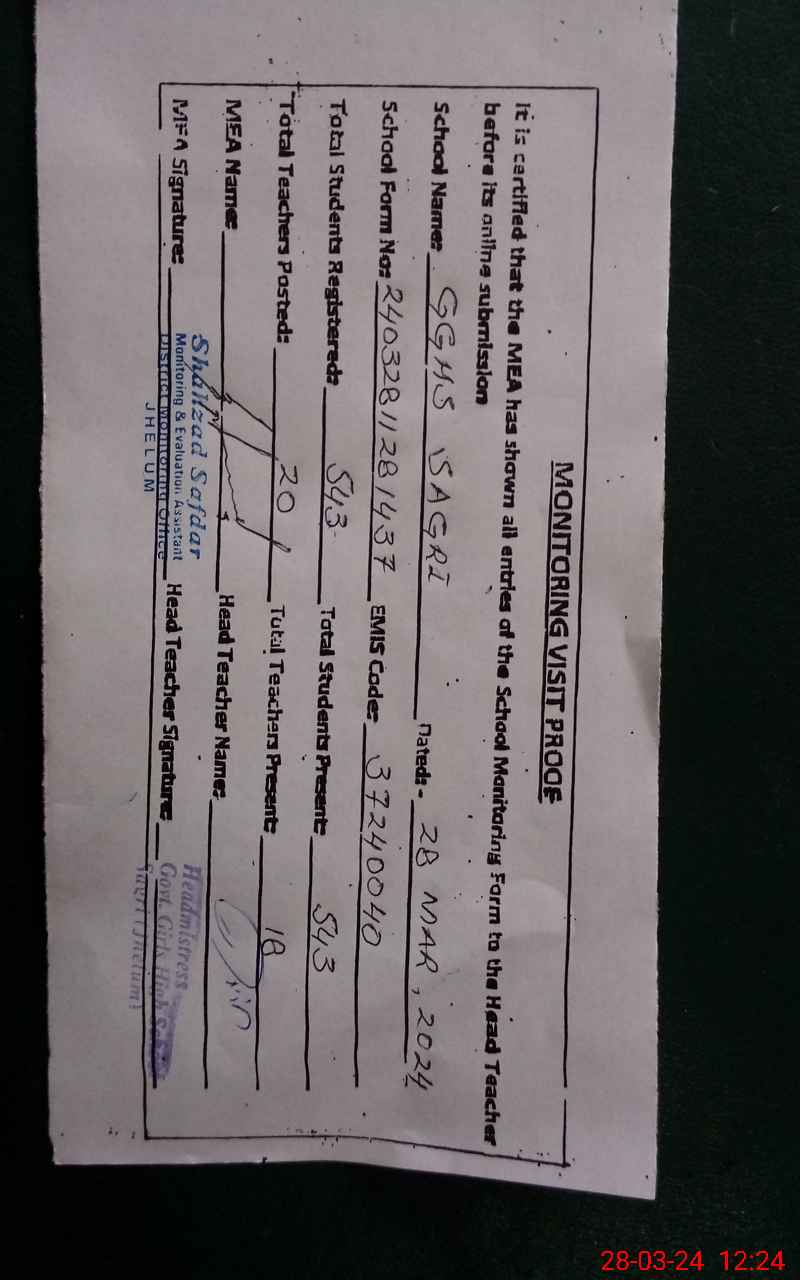 MONITORING VISIT PROOF
It is certified that the MEA has shown all entries of the School Monitoring Form to the Head Teacher
before its online submission
School Name: GGHS SAGRI Dated:- 28 MAR, 2024
School Form No: 24032811281437 EMIS Code: 37240040
Total Students Registered: 543 Total Students Present: 543
Total Teachers Posted: 20 Total Teachers Present: 18
MEA Name: Head Teacher Name:
MEA Signature: Head Teacher Signature:
Shahzad Safdar
Monitoring & Evaluation Assistant
District Monitoring Office
JHELUM
Headmistress
Govt. Girls High School
Sagri (Jhelum)
28-03-24 12:24